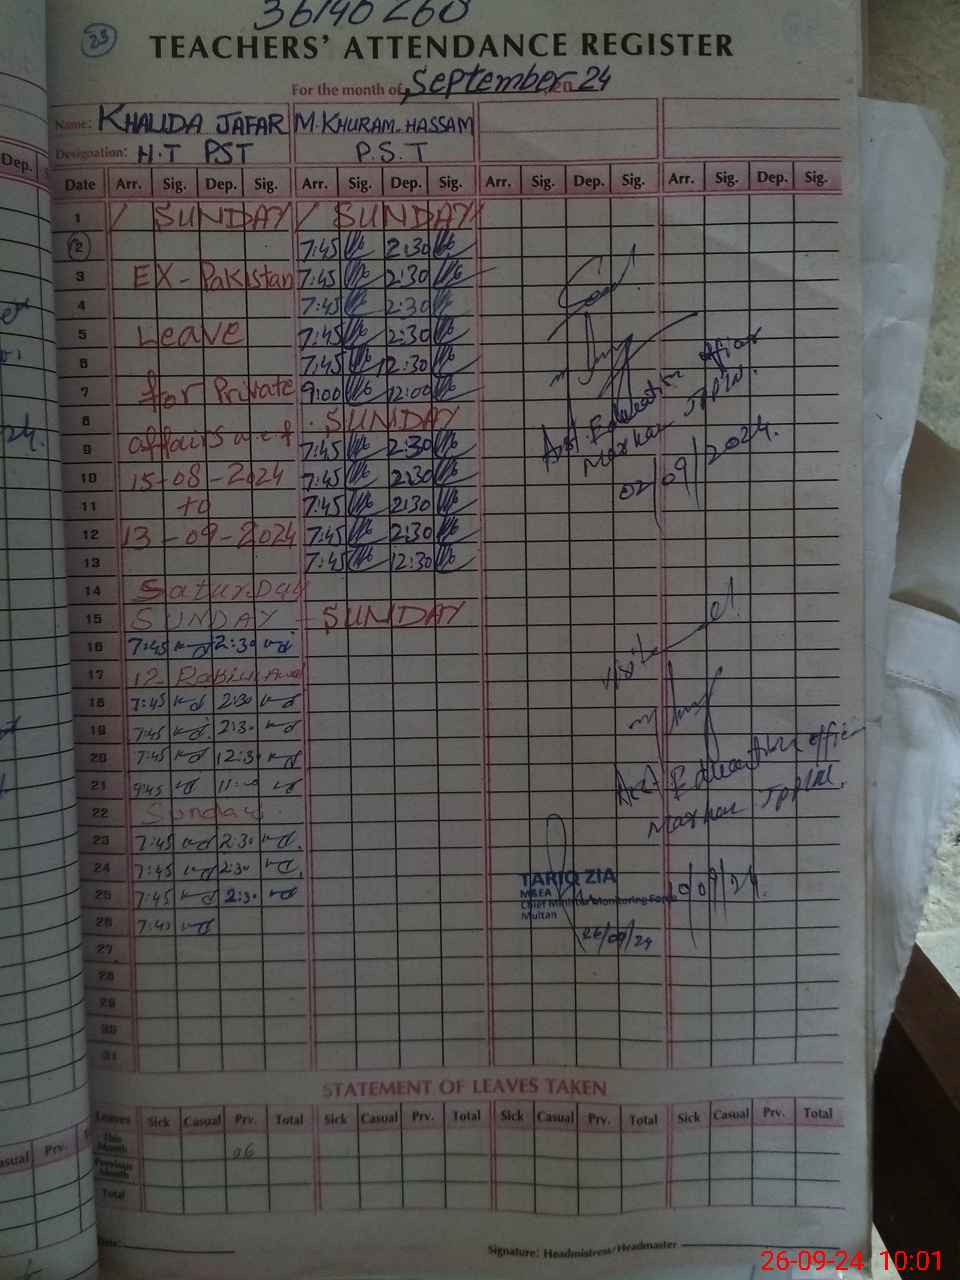 36140260
23
TEACHERS' ATTENDANCE REGISTER
For the month of September 24
Name: KHALIDA JAFAR M. KHURAM. HASSAM
Designation: H.T PST P.S.T
Date Arr. Sig. Dep. Sig. Arr. Sig. Dep. Sig. Arr. Sig. Dep. Sig. Arr. Sig. Dep. Sig.
1 / SUNDAY / SUNDAY
2 7:45 2:30
3 EX-Pakistan 7:45 2:30
4 7:45 2:30
5 Leave 7:45 2:30
6 7:45 12:30
7 for Private 9:00 12:00
8 SUNDAY
affairs w.e.f
9 7:45 2:30
10 15-08-2024 7:45 2:30
11 to 7:45 2:30
12 13-09-2024 7:45 2:30
13 7:45 12:30
14 Saturday
15 SUNDAY - SUNDAY
16 7:45 2:30
17 12-Rabiul Awal
18 7:45 2:30
19 7:45 2:30
20 7:45 12:30
21 9:45 11:00
22 Sunday
23 7:45 2:30
24 7:45 2:30
25 7:45 2:30
26 7:45
27
28
29
30
31
Asst. Education officer
02/09/2024.
Visited
Asst Education officer
10/09/24.
TARIQ ZIA
MEA
Chief Minister Monitoring Force
Multan
26/09/24
STATEMENT OF LEAVES TAKEN
Leaves Sick Casual Prv. Total Sick Casual Prv. Total Sick Casual Prv. Total Sick Casual Prv. Total
This Month 06
Previous Month
Total
Date:
Signature: Headmistress/Headmaster
26-09-24 10:01